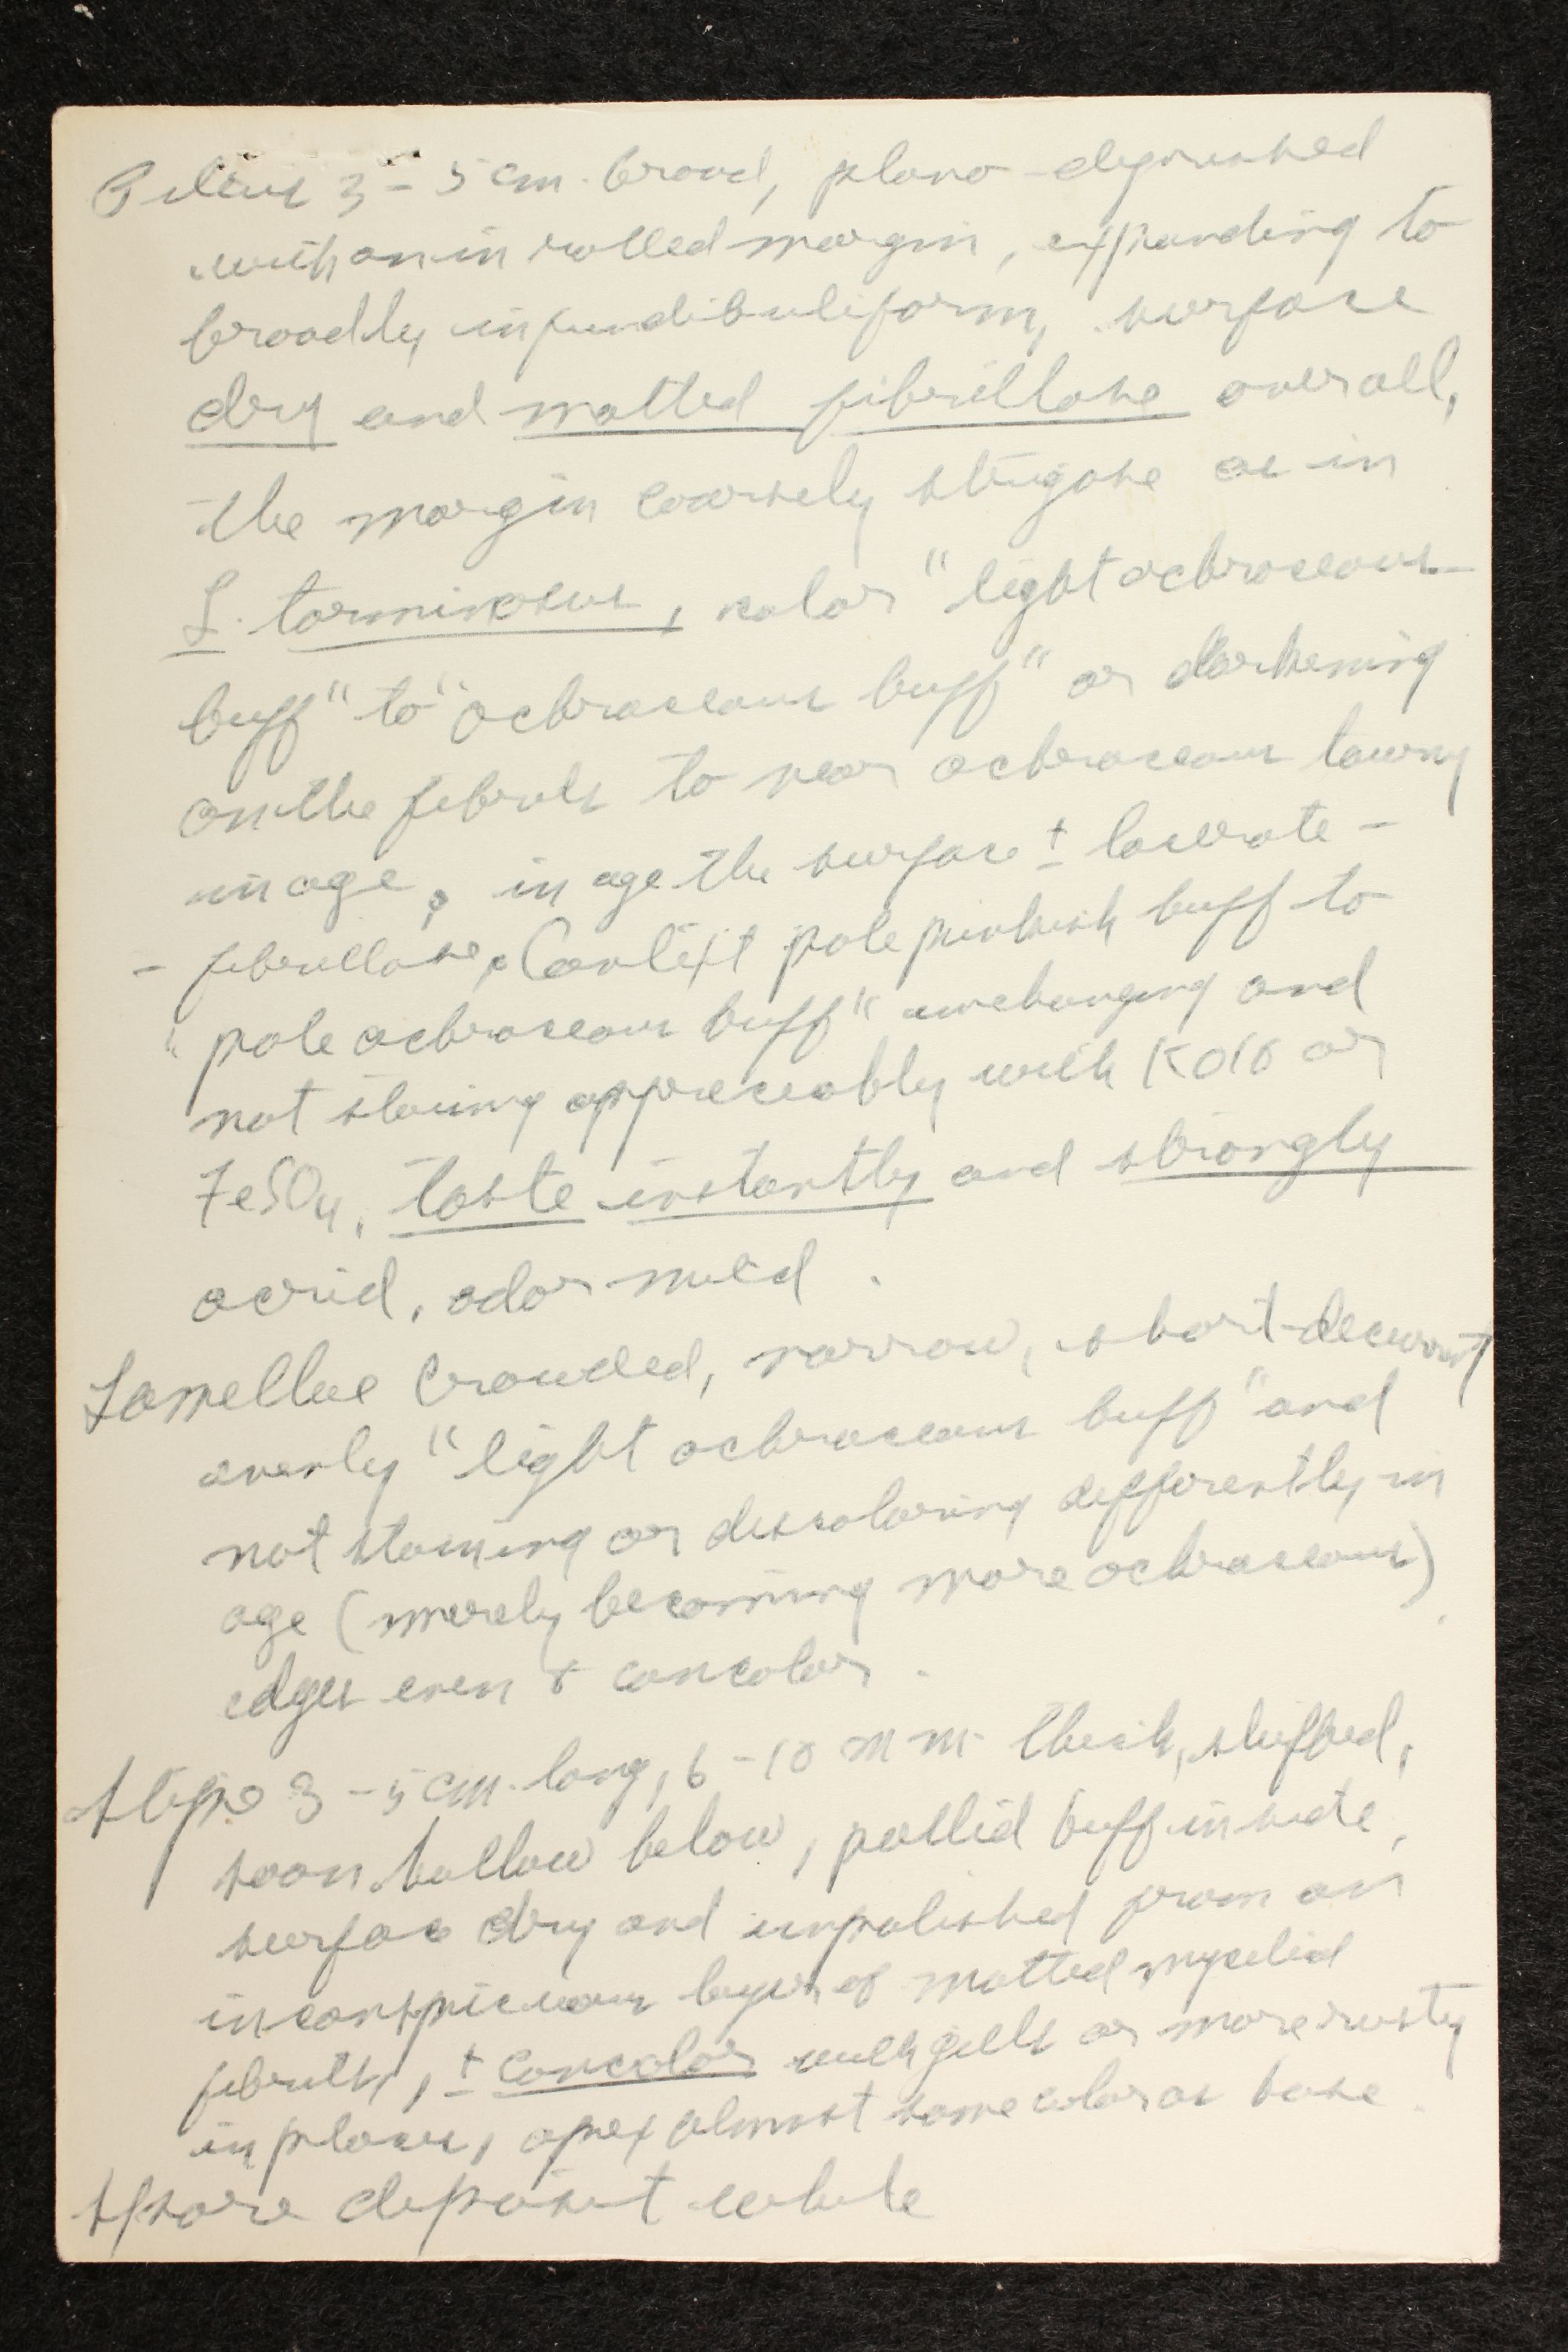 Pileus 3-5 cm. broad, plano-depressed
with an in rolled margin, expanding to
broadly infundibuliform, surface
dry and matted fibrillose overall,
the margin coarsely strigose as in
L. torminosus, color "light ochraceous-
buff" to "ochraceous buff" or darkening
on the fibrils to near ochraceous tawny
in age, in age the surface ± lacerate-
- fibrillose, Context pale pinkish buff to
"pale ochraceous buff" unchanging and
not staining appreciably with KOH or
FeSO4, taste instantly and strongly
acrid, odor mild.
Lamellae crowded, narrow, short-decurrent
evenly "light ochraceous buff" and
not staining or discoloring differently in
age (merely becoming more ochraceous),
edges even & concolor.
Stipe 3-5 cm. long, 6-10 mm. thick, stuffed,
soon hollow below, pallid buff inside,
surface dry and unpolished from an
inconspicuous layer of matted mycelial
fibrils, ± concolor with gills or more rusty
in places, apex almost same color as base.
Spore deposit white